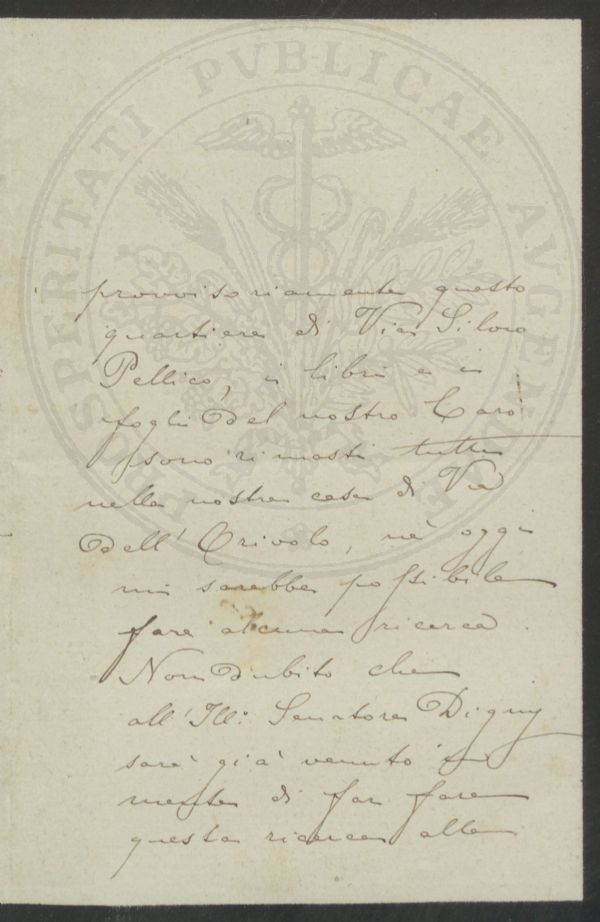 PROSPERITATI PVBLICAE AVGENDAE
provvisoriamente questo
quartiere di Via Silvio
Pellico, i libri e i
fogli del nostro Caro
sono rimasti tutti
nella nostra casa di Via
dell' Orivolo, nè oggi
mi sarebbe possibile
fare alcuna ricerca.
Non dubito che
all' Ill: Senatore Digny
sarà già venuto in
mente di far fare
questa ricerca alla